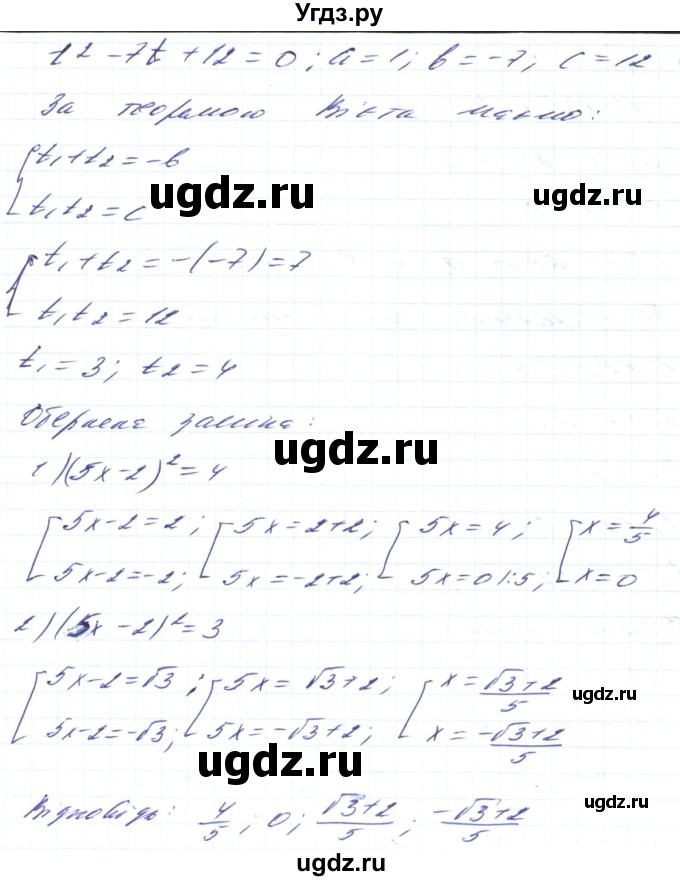 Угдз.ру
t² - 7t + 12 = 0; a = 1; b = -7; c = 12
За теоремою Вієта маємо:
t₁ + t₂ = -b
t₁t₂ = c
ugdz.ru
ugdz.ru
t₁ + t₂ = -(-7) = 7
t₁t₂ = 12
t₁ = 3; t₂ = 4
Обернена заміна:
ugdz.ru
1) (5x - 2)² = 4
[5x - 2 = 2; [5x = 2 + 2; [5x = 4; [x = 4/5
5x - 2 = -2; 5x = -2 + 2; 5x = 0 |:5; x = 0
2) (5x - 2)² = 3
[5x - 2 = √3; [5x = √3 + 2; [x = (√3 + 2)/5
5x - 2 = -√3; 5x = -√3 + 2; x = (-√3 + 2)/5
ugdz.ru
ugdz.ru
Відповідь: 4/5; 0; (√3 + 2)/5; (-√3 + 2)/5
ugdz.ru